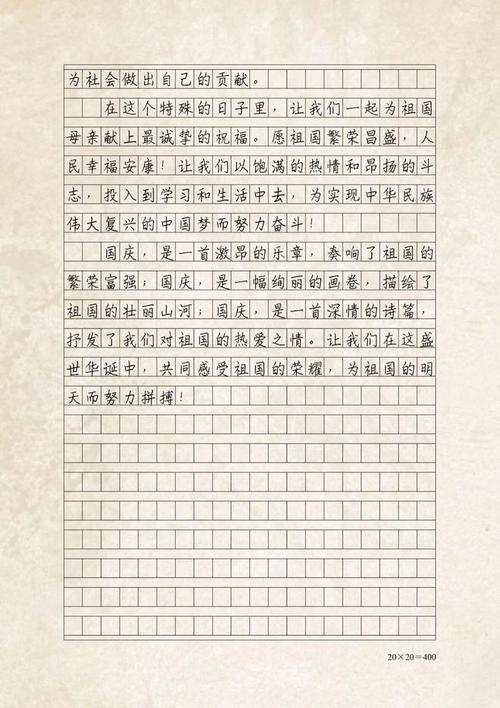 为社会做出自己的贡献。
在这个特殊的日子里，让我们一起为祖国
母亲献上最诚挚的祝福。愿祖国繁荣昌盛，人
民幸福安康！让我们以饱满的热情和昂扬的斗
志，投入到学习和生活中去，为实现中华民族
伟大复兴的中国梦而努力奋斗！
国庆，是一首激昂的乐章，奏响了祖国的
繁荣富强；国庆，是一幅绚丽的画卷，描绘了
祖国的壮丽山河；国庆，是一首深情的诗篇，
抒发了我们对祖国的热爱之情。让我们在这盛
世华诞中，共同感受祖国的荣耀，为祖国的明
天而努力拼搏！
20×20＝400